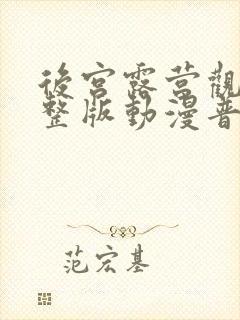 後宮露营觀
整版動漫普
范宏基